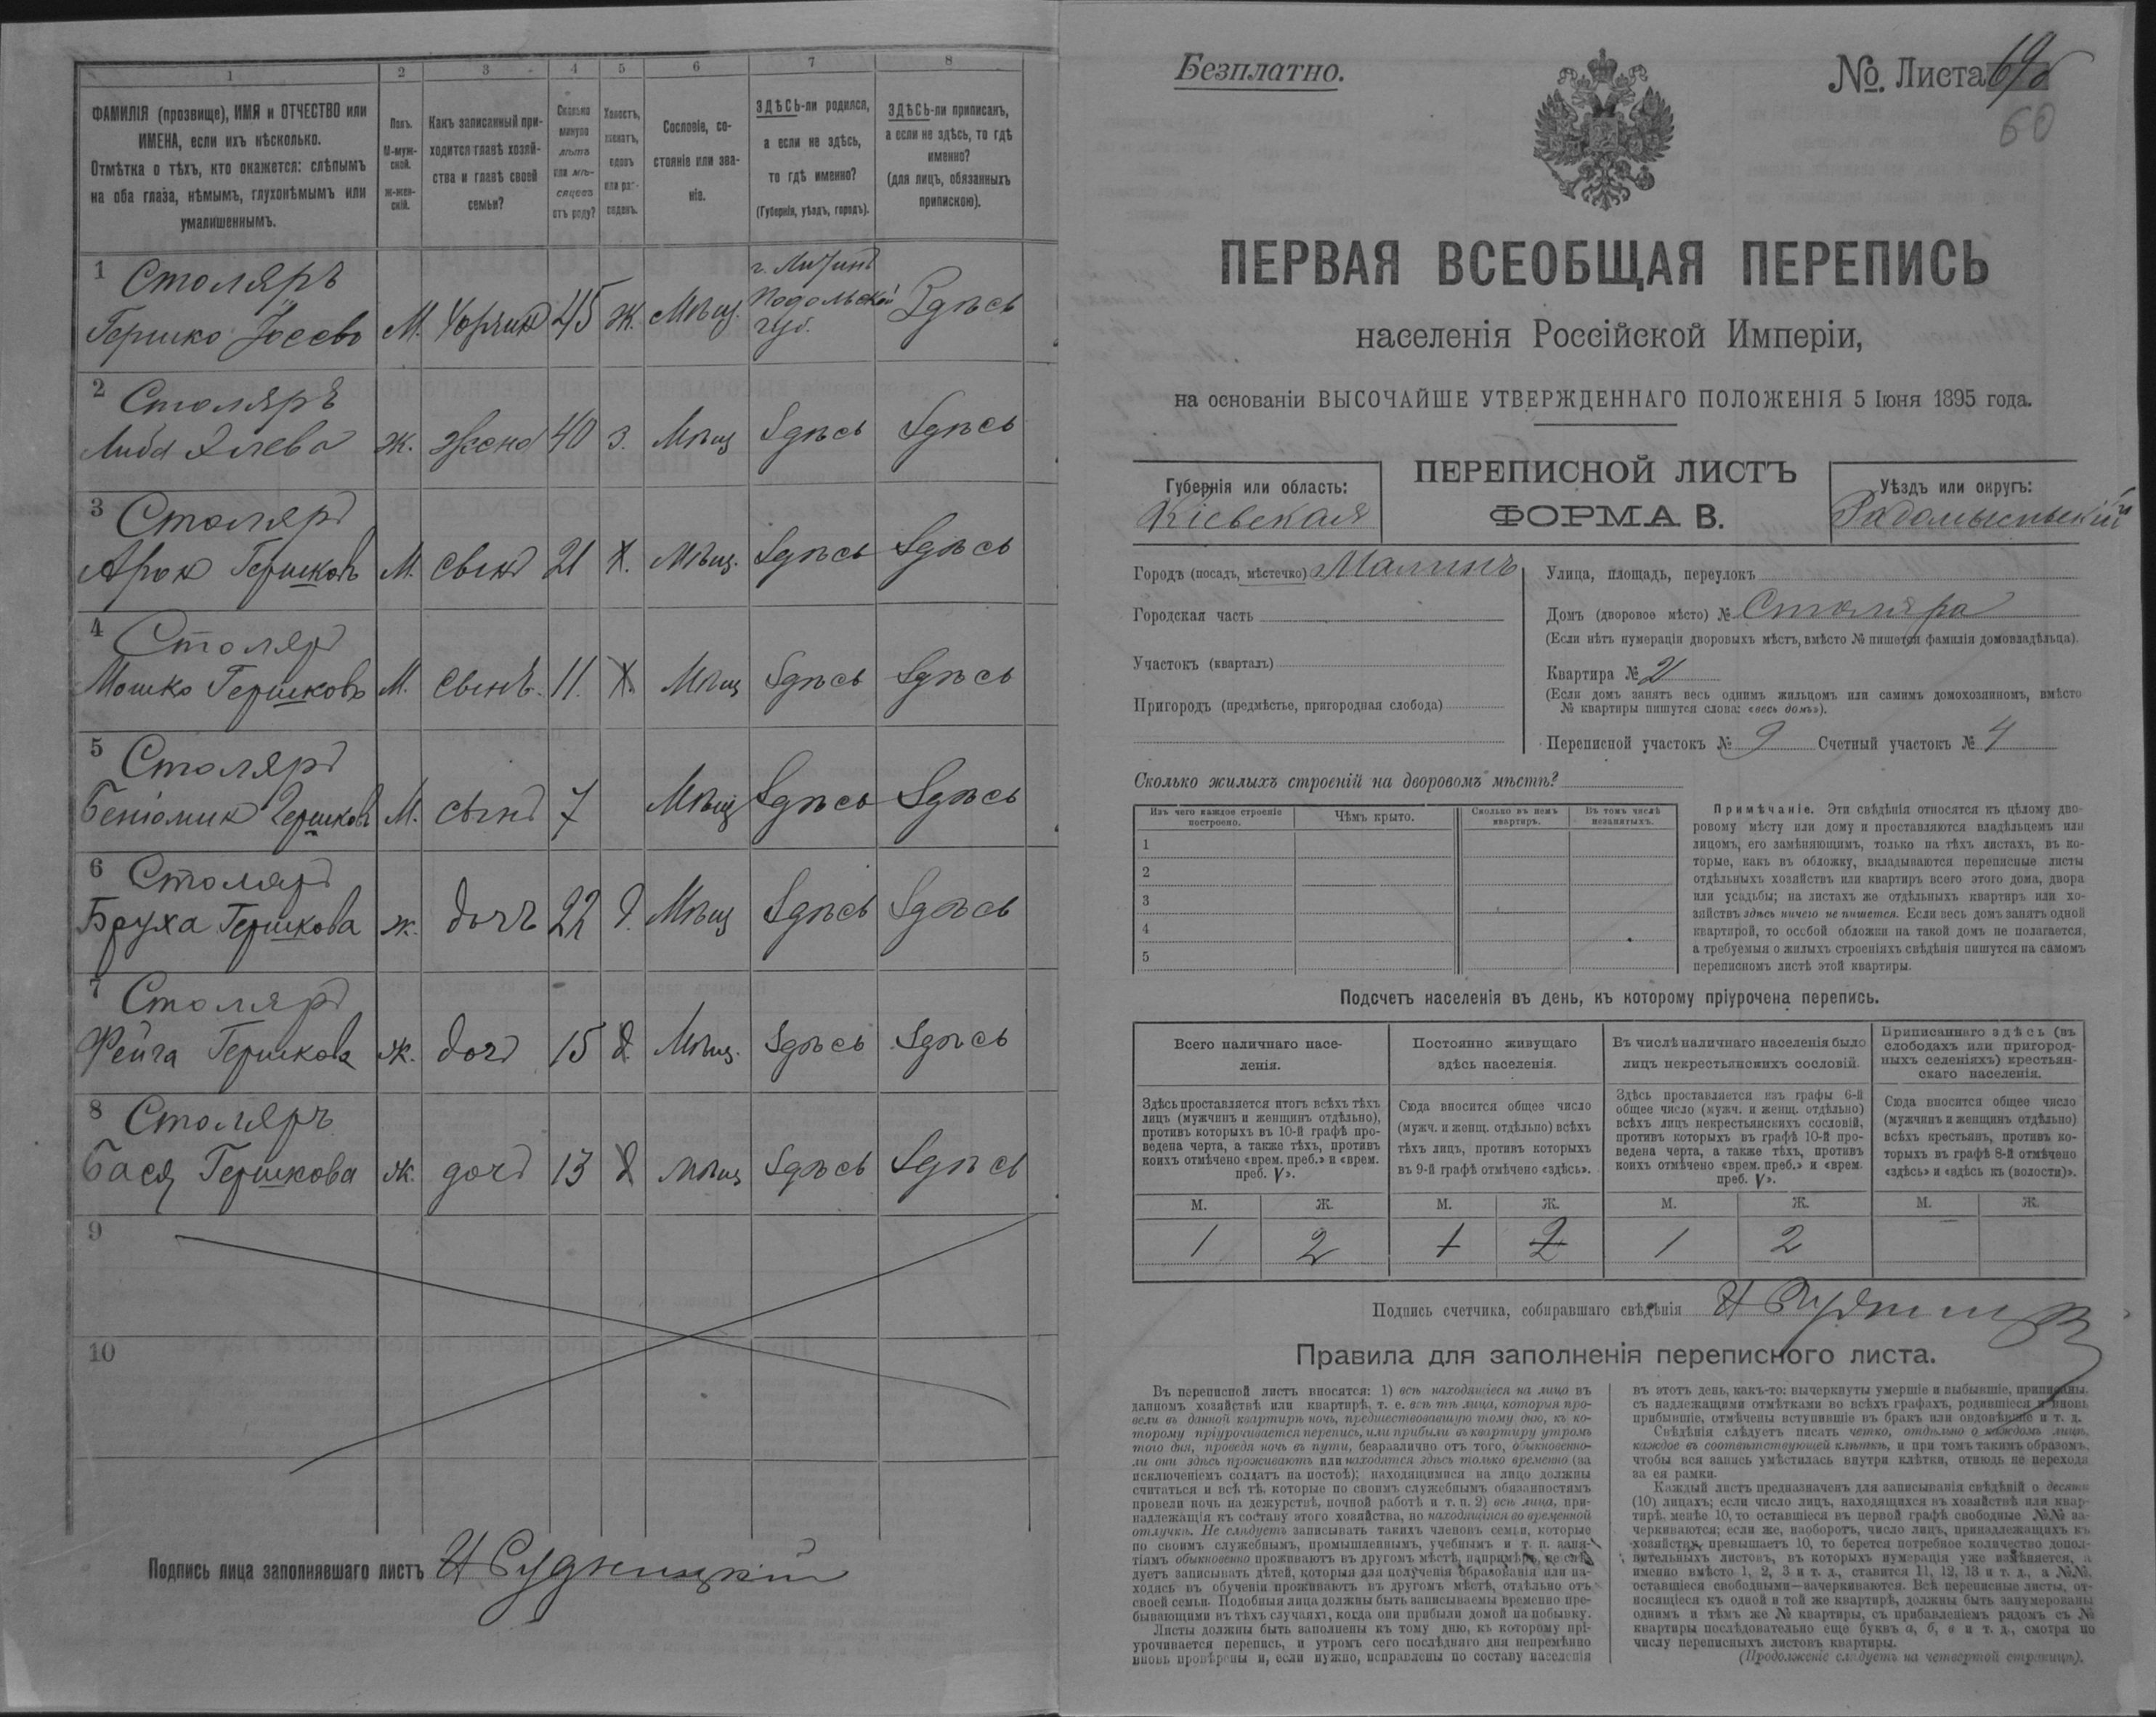 1 2 3 4 5 6 7 8
ФАМИЛІЯ (прозвище), ИМЯ и ОТЧЕСТВО или
ИМЕНА, если ихъ нѣсколько.
Отмѣтка о тѣхъ, кто окажется: слѣпымъ
на оба глаза, нѣмымъ, глухонѣмымъ или
умалишеннымъ.
Полъ.
М-муж-
ской.
Ж-жен-
скій.
Какъ записанный при-
ходится главѣ хозяй-
ства и главѣ своей
семьи?
Сколько
минуло
лѣтъ
или мѣ-
сяцевъ
отъ роду?
Холостъ,
женатъ,
вдовъ
или раз-
веденъ.
Сословіе, со-
стояніе или зва-
ніе.
ЗДѢСЬ-ли родился,
а если не здѣсь,
то гдѣ именно?
(Губернія, уѣздъ, городъ).
ЗДѢСЬ-ли приписанъ,
а если не здѣсь, то гдѣ
именно?
(для лицъ, обязанныхъ
припискою).
1 Столяръ
Гершко М. 45 ж. Мѣщ. Подольской губ. Здѣсь
2 Столяръ
Либа ж. жена 40 з. Мѣщ Здѣсь Здѣсь
3 Столяръ
Аронъ Гершковъ М. сынъ 21 х. Мѣщ. Здѣсь Здѣсь
4 Столяръ
Мошко Гершковъ М. сынъ. 11. х. Мѣщ Здѣсь Здѣсь
5 Столяръ
Беніоминъ Гершковъ М. сынъ 7 Мѣщ Здѣсь Здѣсь
6 Столяръ
Бруха Гершкова ж. дочь 22 д. Мѣщ Здѣсь Здѣсь
7 Столяръ
Фейга Гершкова ж. дочь 15 д Мѣщ. Здѣсь Здѣсь
8 Столяръ
Бася Гершкова ж. дочь 13 д мѣщ Здѣсь Здѣсь
9
10
Подпись лица заполнявшаго листъ Рудницкій
Безплатно.
№. Листа
60
ПЕРВАЯ ВСЕОБЩАЯ ПЕРЕПИСЬ
населенія Россійской Имперіи,
на основаніи ВЫСОЧАЙШЕ УТВЕРЖДЕННАГО ПОЛОЖЕНІЯ 5 Іюня 1895 года.
Губернія или область:
Кіевская
ПЕРЕПИСНОЙ ЛИСТЪ
ФОРМА В.
Уѣздъ или округъ:
Радомысльскій
Городъ (посадъ, мѣстечко) Малинъ
Городская часть
Участокъ (кварталъ)
Пригородъ (предмѣстье, пригородная слобода)
Улица, площадь, переулокъ
Домъ (дворовое мѣсто) № Столяра
(Если нѣтъ нумераціи дворовыхъ мѣстъ, вмѣсто № пишется фамилія домовладѣльца).
Квартира № 2
(Если домъ занятъ весь однимъ жильцомъ или самимъ домохозяиномъ, вмѣсто
№ квартиры пишутся слова: «весь домъ»).
Переписной участокъ № 9 Счетный участокъ № 4
Сколько жилыхъ строеній на дворовомъ мѣстѣ?
Изъ чего каждое строеніе
построено.
Чѣмъ крыто.
Сколько въ немъ
квартиръ.
Въ томъ числѣ
незанятыхъ.
1
2
3
4
5
Примѣчаніе. Эти свѣдѣнія относятся къ цѣлому дво-
ровому мѣсту или дому и проставляются владѣльцемъ или
лицомъ, его замѣняющимъ, только на тѣхъ листахъ, въ ко-
торые, какъ въ обложку, вкладываются переписные листы
отдѣльныхъ хозяйствъ или квартиръ всего этого дома, двора
или усадьбы; на листахъ же отдѣльныхъ квартиръ или хо-
зяйствъ здѣсь ничего не пишется. Если весь домъ занятъ одной
квартирой, то особой обложки на такой домъ не полагается,
а требуемыя о жилыхъ строеніяхъ свѣдѣнія пишутся на самомъ
переписномъ листѣ этой квартиры.
Подсчетъ населенія въ день, къ которому пріурочена перепись.
Всего наличнаго насе-
ленія.
Постоянно живущаго
здѣсь населенія.
Въ числѣ наличнаго населенія было
лицъ некрестьянскихъ сословій.
Приписаннаго здѣсь (въ
слободахъ или пригород-
ныхъ селеніяхъ) крестьян-
скаго населенія.
Здѣсь проставляется итогъ всѣхъ тѣхъ
лицъ (мужчинъ и женщинъ отдѣльно),
противъ которыхъ въ 10-й графѣ про-
ведена черта, а также тѣхъ, противъ
коихъ отмѣчено «врем. преб.» и «врем.
преб. V».
Сюда вносится общее число
(мужч. и женщ. отдѣльно) всѣхъ
тѣхъ лицъ, противъ которыхъ
въ 9-й графѣ отмѣчено «здѣсь».
Здѣсь проставляется изъ графы 6-й
общее число (мужч. и женщ. отдѣльно)
всѣхъ лицъ некрестьянскихъ сословій,
противъ которыхъ въ графѣ 10-й про-
ведена черта, а также тѣхъ, противъ
коихъ отмѣчено «врем. преб.» и «врем.
преб. V».
Сюда вносится общее число
(мужчинъ и женщинъ отдѣльно)
всѣхъ крестьянъ, противъ ко-
торыхъ въ графѣ 8-й отмѣчено
«здѣсь» и «здѣсь къ (волости)».
М. Ж. М. Ж. М. Ж. М. Ж.
1 2 1 2 1 2
Подпись счетчика, собиравшаго свѣдѣнія
Правила для заполненія переписного листа.
Въ переписной листъ вносятся: 1) всѣ находящіеся на лицо въ
данномъ хозяйствѣ или квартирѣ, т. е. всѣ тѣ лица, которыя про-
вели въ данной квартирѣ ночь, предшествовавшую тому дню, къ ко-
торому пріурочивается перепись, или прибыли въ квартиру утромъ
того дня, проведя ночь въ пути, безразлично отъ того, обыкновенно-
ли они здѣсь проживаютъ или находятся здѣсь только временно (за
исключеніемъ солдатъ на постоѣ); находящимися на лицо должны
считаться и всѣ тѣ, которые по своимъ служебнымъ обязанностямъ
провели ночь на дежурствѣ, ночной работѣ и т. п. 2) всѣ лица, при-
надлежащія къ составу этого хозяйства, но находящіяся во временной
отлучкѣ. Не слѣдуетъ записывать такихъ членовъ семьи, которые
по своимъ служебнымъ, промышленнымъ, учебнымъ и т. п. заня-
тіямъ обыкновенно проживаютъ въ другомъ мѣстѣ, напримѣръ, не слѣ-
дуетъ записывать дѣтей, которыя для полученія образованія или на-
ходясь въ обученіи проживаютъ въ другомъ мѣстѣ, отдѣльно отъ
своей семьи. Подобныя лица должны быть записываемы временно пре-
бывающими въ тѣхъ случаяхъ, когда они прибыли домой на побывку.
Листы должны быть заполнены къ тому дню, къ которому прі-
урочивается перепись, и утромъ сего послѣдняго дня непремѣнно
вновь провѣрены и, если нужно, исправлены по составу населенія
въ этотъ день, какъ-то: вычеркнуты умершіе и выбывшіе, приписаны
съ надлежащими отмѣтками во всѣхъ графахъ, родившіеся и вновь
прибывшіе, отмѣчены вступившіе въ бракъ или овдовѣвшіе и т. д.
Свѣдѣнія слѣдуетъ писать четко, отдѣльно о каждомъ лицѣ,
каждое въ соотвѣтствующей клѣткѣ, и при томъ такимъ образомъ,
чтобы вся запись умѣстилась внутри клѣтки, отнюдь не переходя
за ея рамки.
Каждый листъ предназначенъ для записыванія свѣдѣній о десяти
(10) лицахъ; если число лицъ, находящихся въ хозяйствѣ или квар-
тирѣ, менѣе 10, то оставшіеся въ первой графѣ свободные №№ за-
черкиваются; если же, наоборотъ, число лицъ, принадлежащихъ къ
хозяйству, превышаетъ 10, то берется потребное количество допол-
нительныхъ листовъ, въ которыхъ нумерація уже измѣняется, а
именно вмѣсто 1, 2, 3 и т. д., ставится 11, 12, 13 и т. д., а №№,
оставшіеся свободными—зачеркиваются. Всѣ переписные листы, от-
носящіеся къ одной и той же квартирѣ, должны быть занумерованы
однимъ и тѣмъ же № квартиры, съ прибавленіемъ рядомъ съ №
квартиры послѣдовательно еще буквъ а, б, в и т. д., смотря по
числу переписныхъ листовъ квартиры.
(Продолженіе слѣдуетъ на четвертой страницѣ).